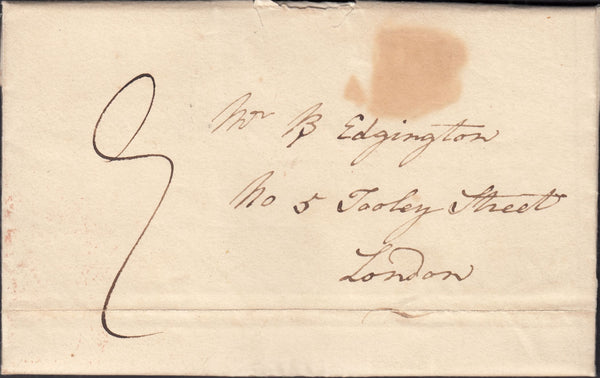 Mr B Edgington
No 5 Tooley Street
London